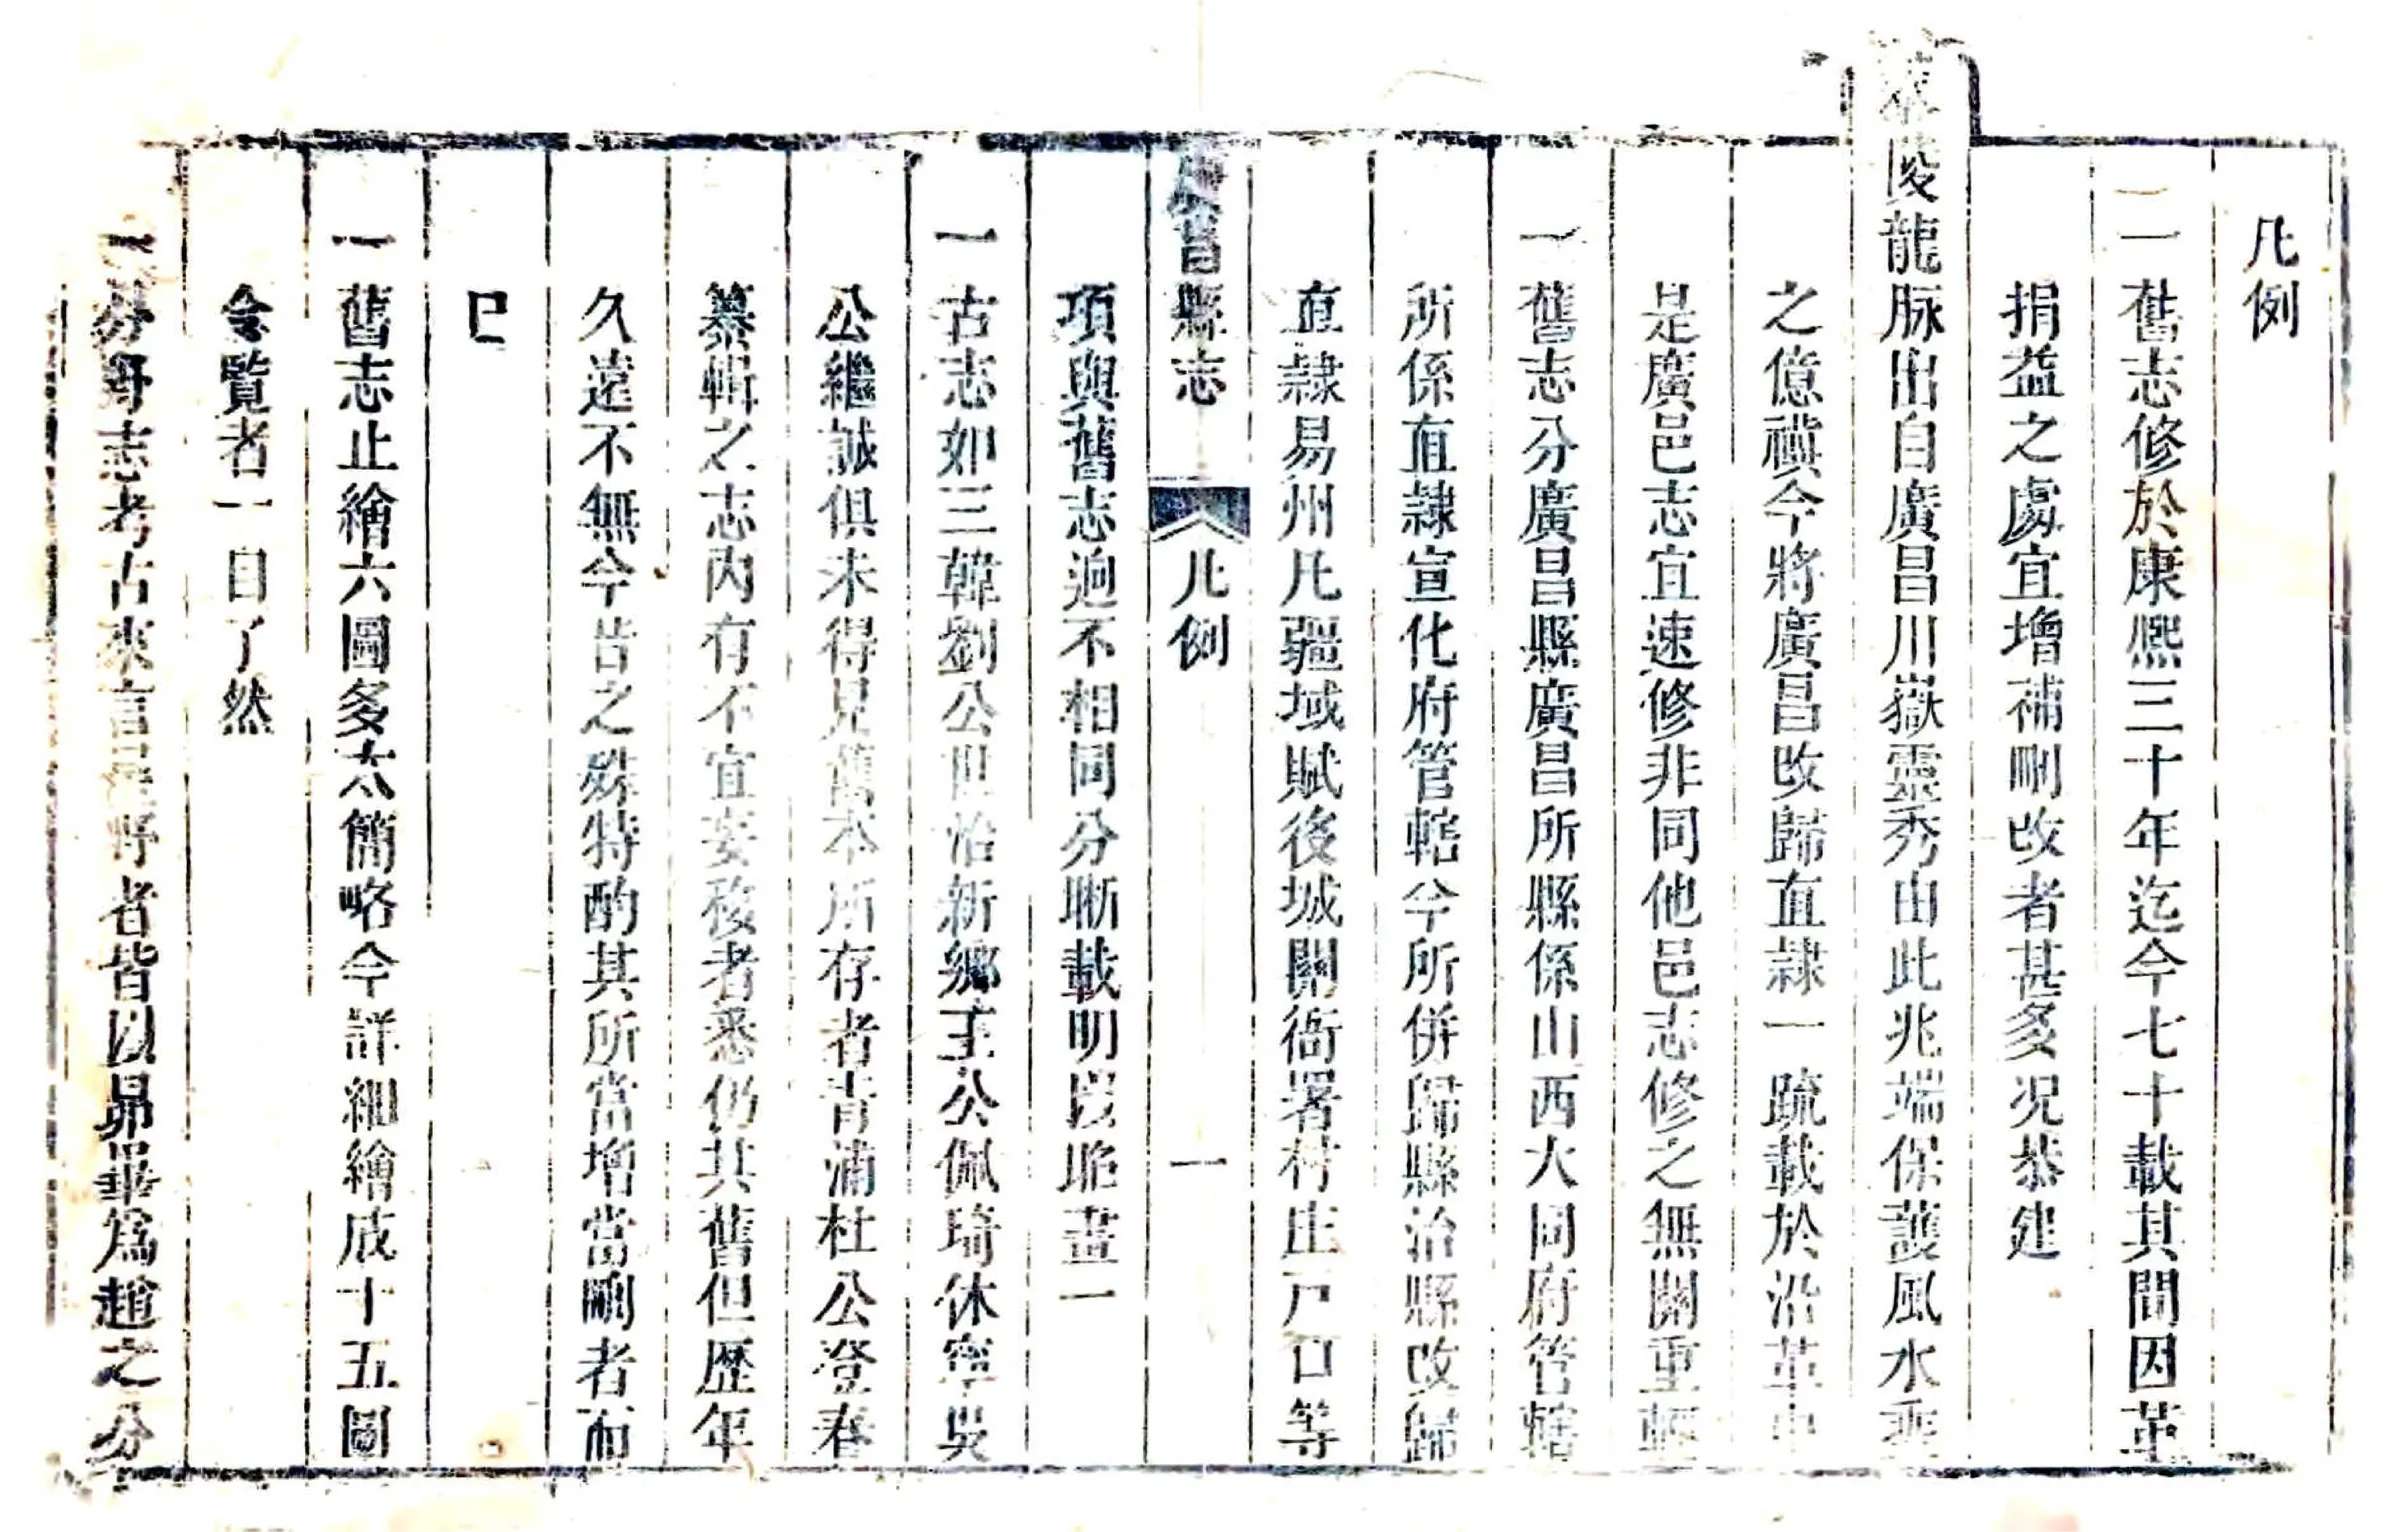 凡例
一舊志修於康熙三十年迄今七十載其間因革
捐益之處宜增補刪改者甚多况恭建
泰陵龍脉出自廣昌川嶽靈秀由此兆端保護風水垂
之億禩今將廣昌改歸直隷一疏載於沿革中
是廣邑志宜速修非同他邑志修之無關重輕
一舊志分廣昌縣廣昌所縣係山西大同府管轄
所係直隷宣化府管轄今所併歸縣治縣改歸
直隷易州凡疆域賦後城關衙署村庄戸口等
項與舊志逈不相同分晰載明畫一
廣昌縣志 凡例 一
一古志如三韓劉公世治新鄉王公佩琦休寧吳
公繼誠俱未得見舊本所存者青浦杜公登春
纂輯之志内有不宜妄移者悉仍其舊但歷年
久遠不無今昔之殊特酌其所當增當刪者而
已
一舊志止繪六圖多太簡略今詳細繪成十五圖
令覽者一目了然
一分野志考古來言星野者皆以昴畢爲趙之分